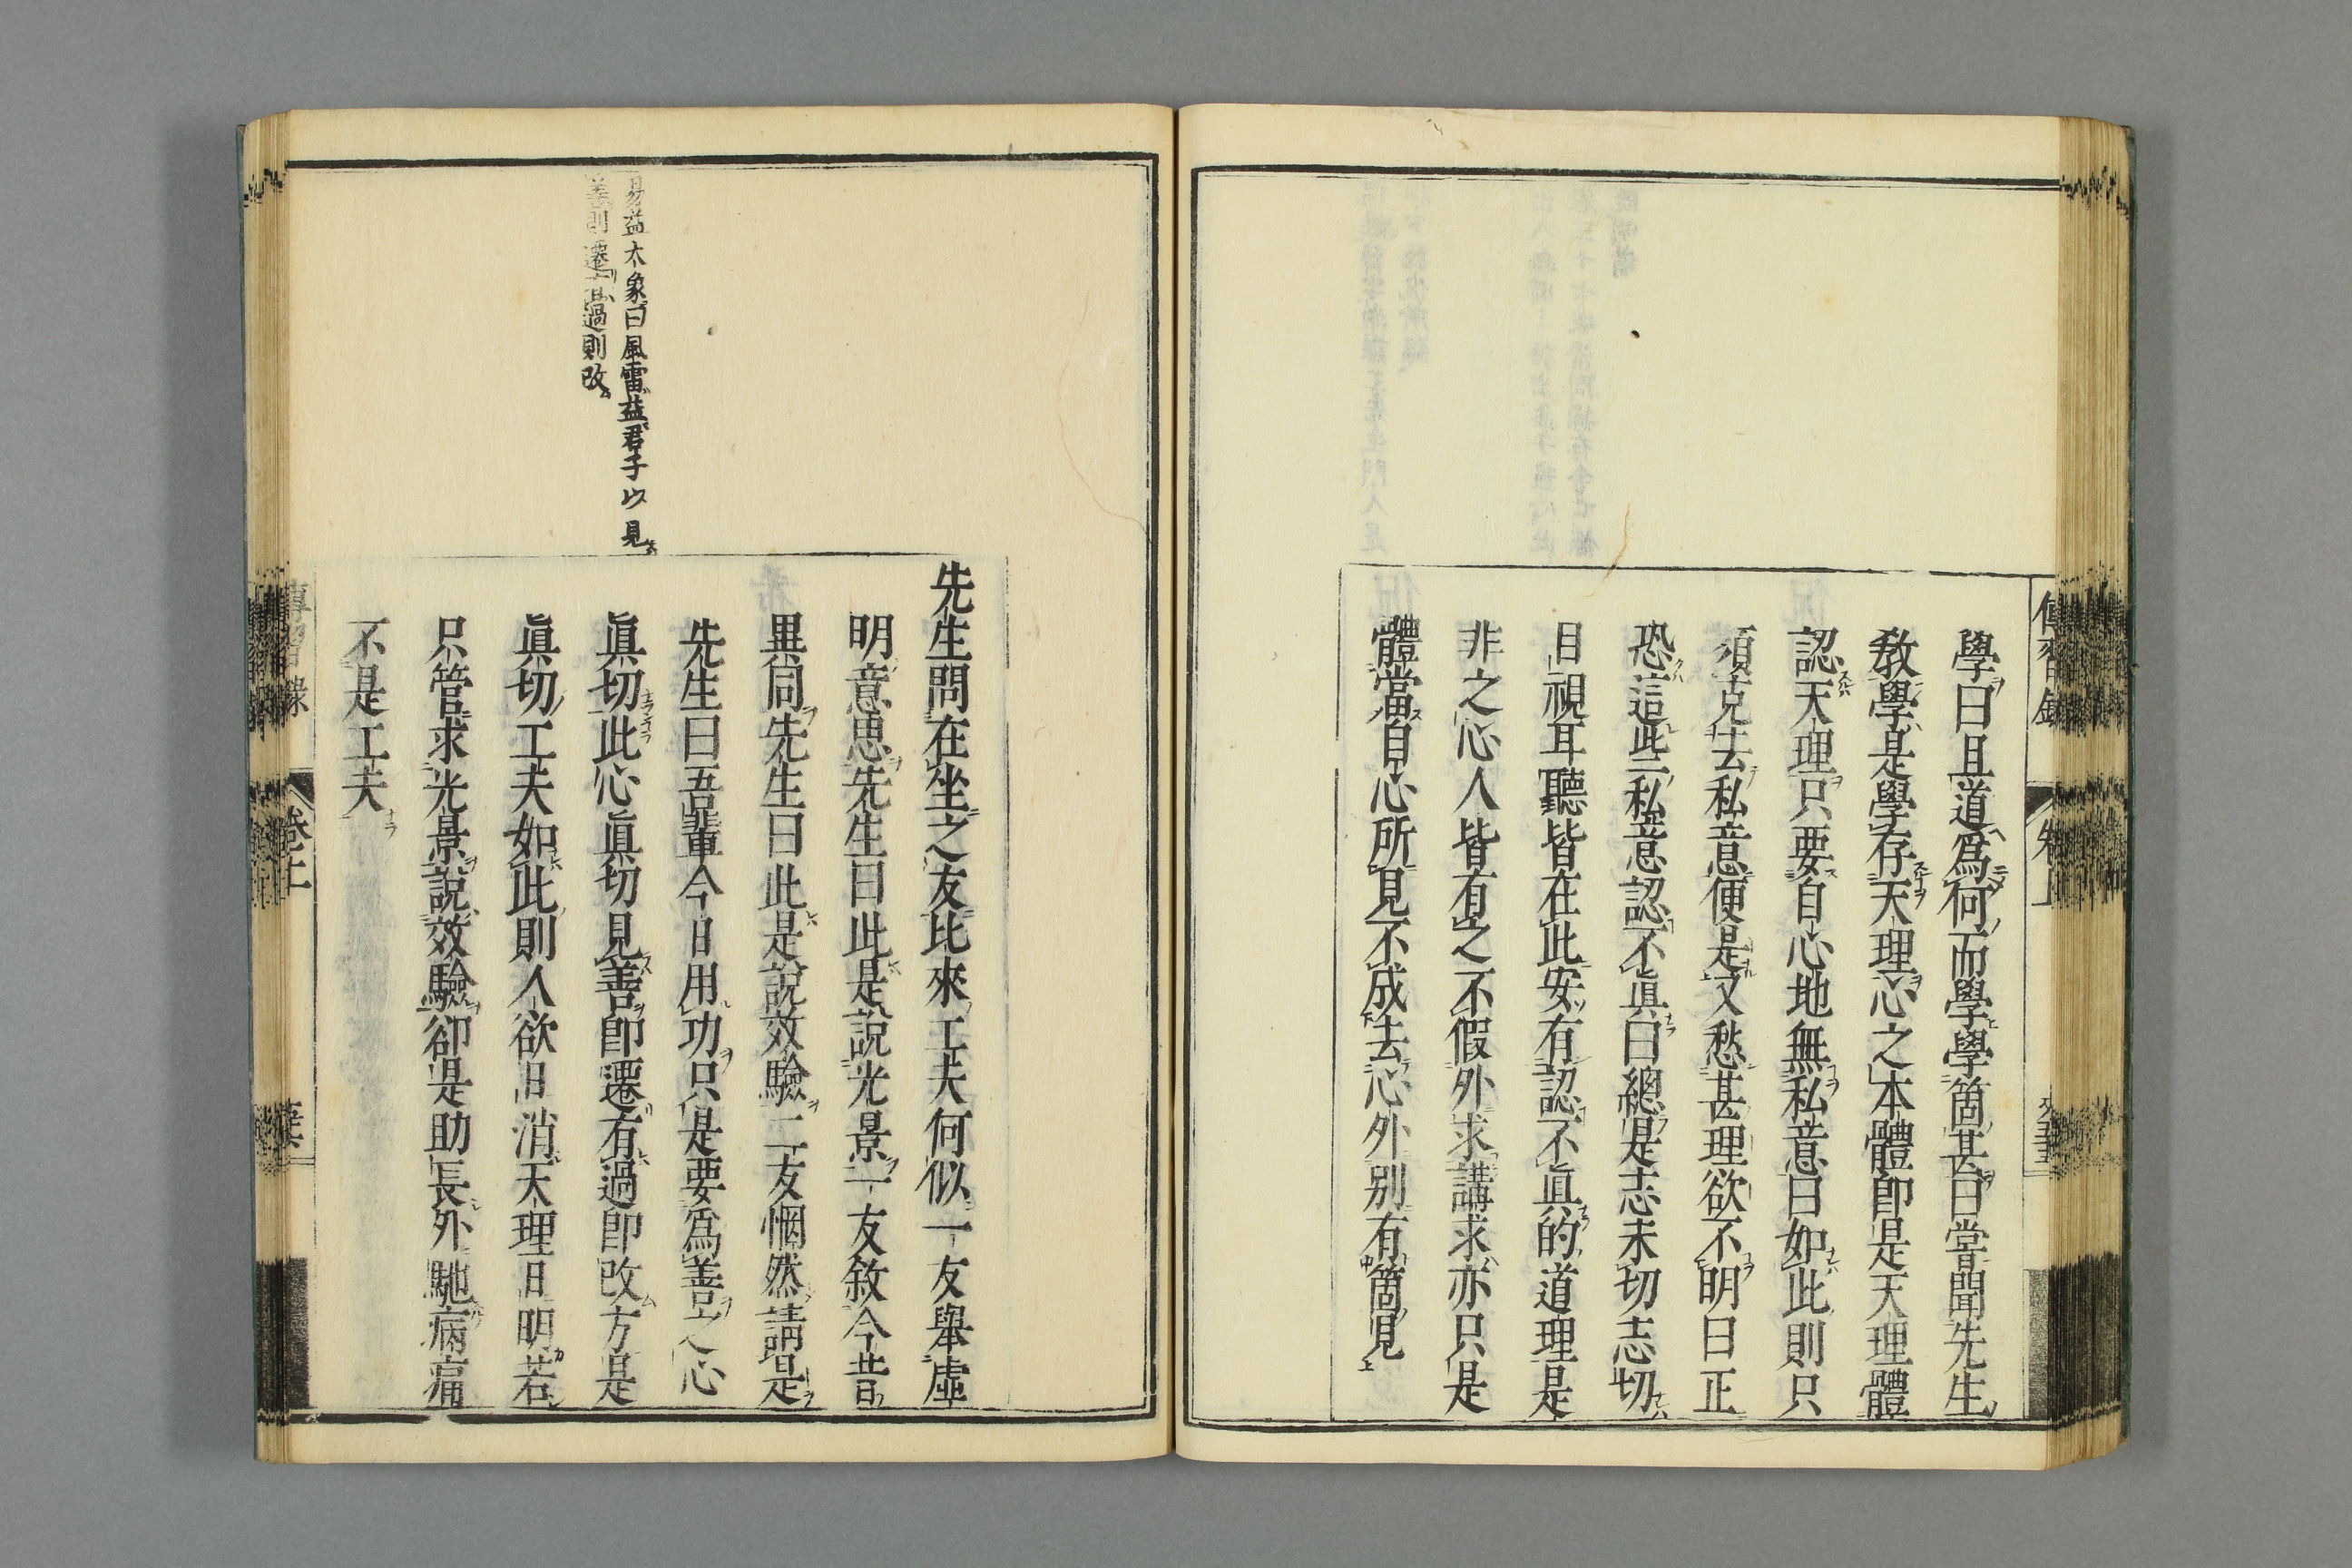 學曰且道爲何而學學箇甚曰嘗聞先生
敎學是學存天理心之本體卽是天理體
認天理只要自心地無私意曰如此則只
須克去私意便是又愁甚理欲不明曰正
恐這些私意認不眞曰總是志未切志切
目視耳聽皆在此安有認不眞的道理是
非之心人皆有之不假外求講求亦只是
體當自心所見不成去心外別有箇見
先生問在坐之友比來工夫何似一友舉虛
明意思先生曰此是說光景一友敘今昔
異同先生曰此是說效驗二友惘然請是
先生曰吾輩今日用功只是要爲善之心
眞切此心眞切見善卽遷有過卽改方是
眞切工夫如此則人欲日消天理日明若
只管求光景說效驗卻是助長外馳病痛
不是工夫
易益大象曰風雷益君子以見
善則遷有過則改
傳習錄 卷上